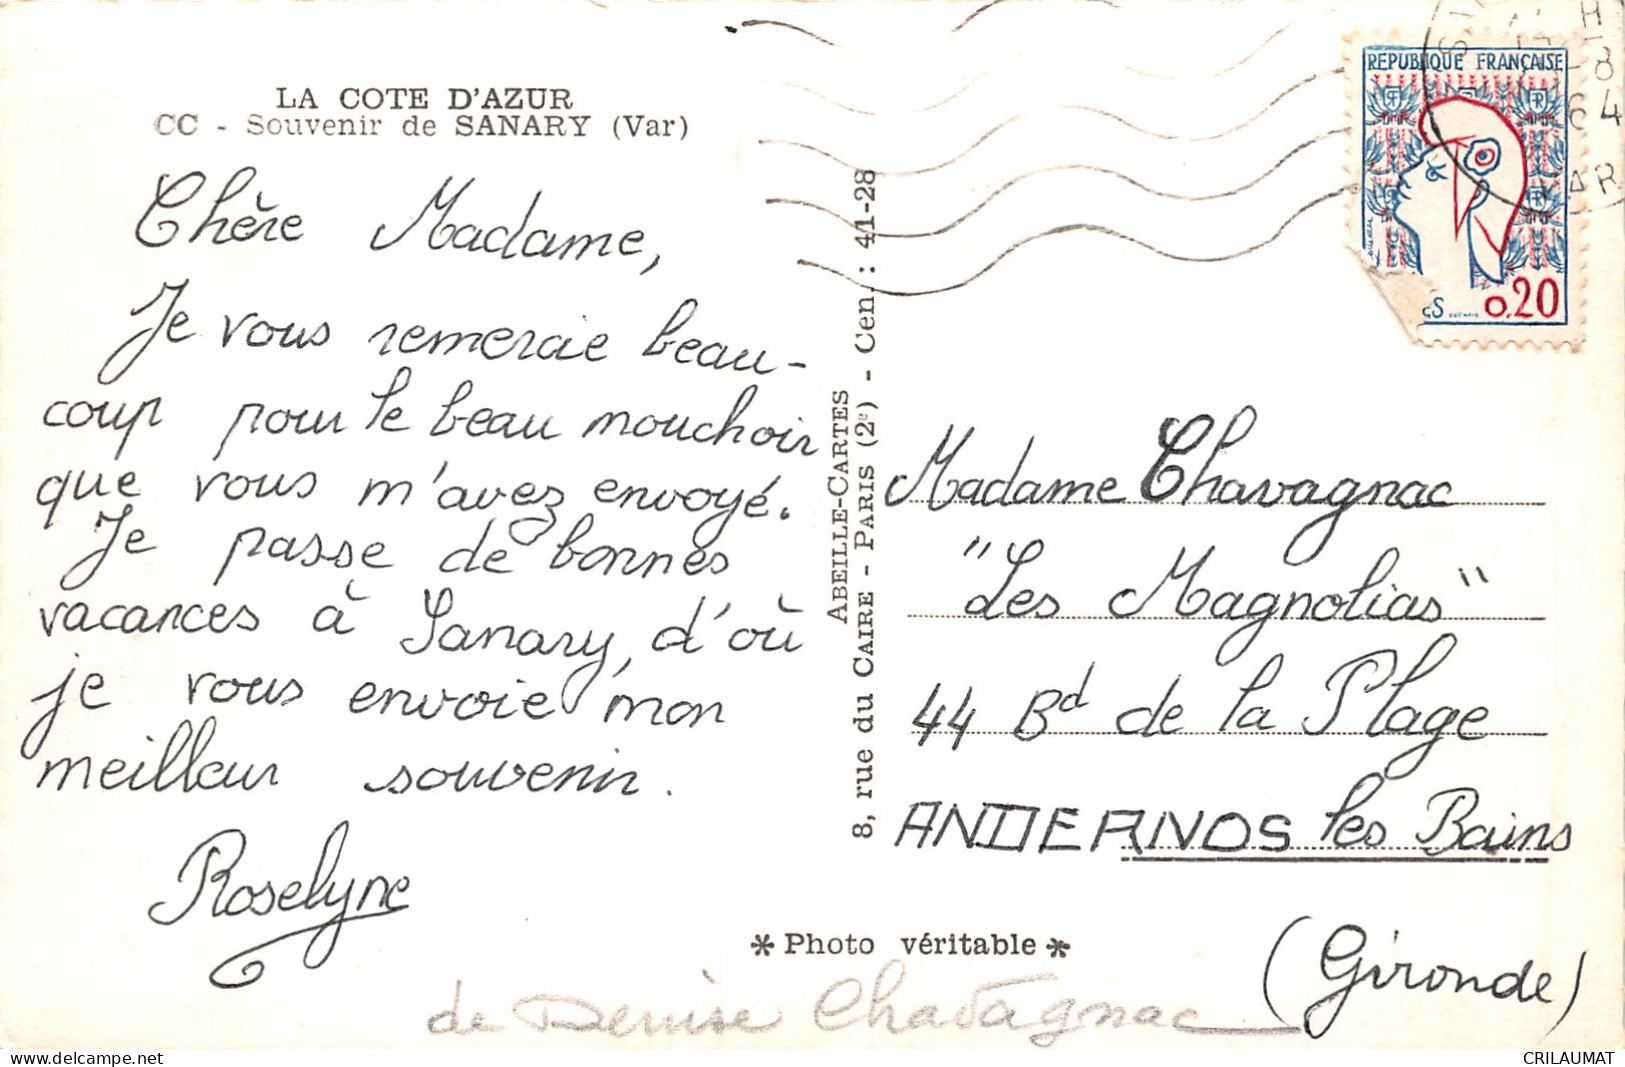 LA COTE D'AZUR
CC - Souvenir de SANARY (Var)
Chère Madame,
Je vous remercie beau-
coup pour le beau mouchoir
que vous m'avez envoyé.
Je passe de bonnes
vacances à Sanary, d'où
je vous envoie mon
meilleur souvenir.
Roselyne
ABEILLE-CARTES
8, rue du CAIRE - PARIS (2e) - Cen. : 41-28
REPUBLIQUE FRANÇAISE
0,20
H
8
64
VAR
Madame Chavagnac
"Les Magnolias"
44 Bd de la Plage
ANDERNOS les Bains
(Gironde)
* Photo véritable *
de Denise Chavagnac
delcampe.net
CRILAUMAT